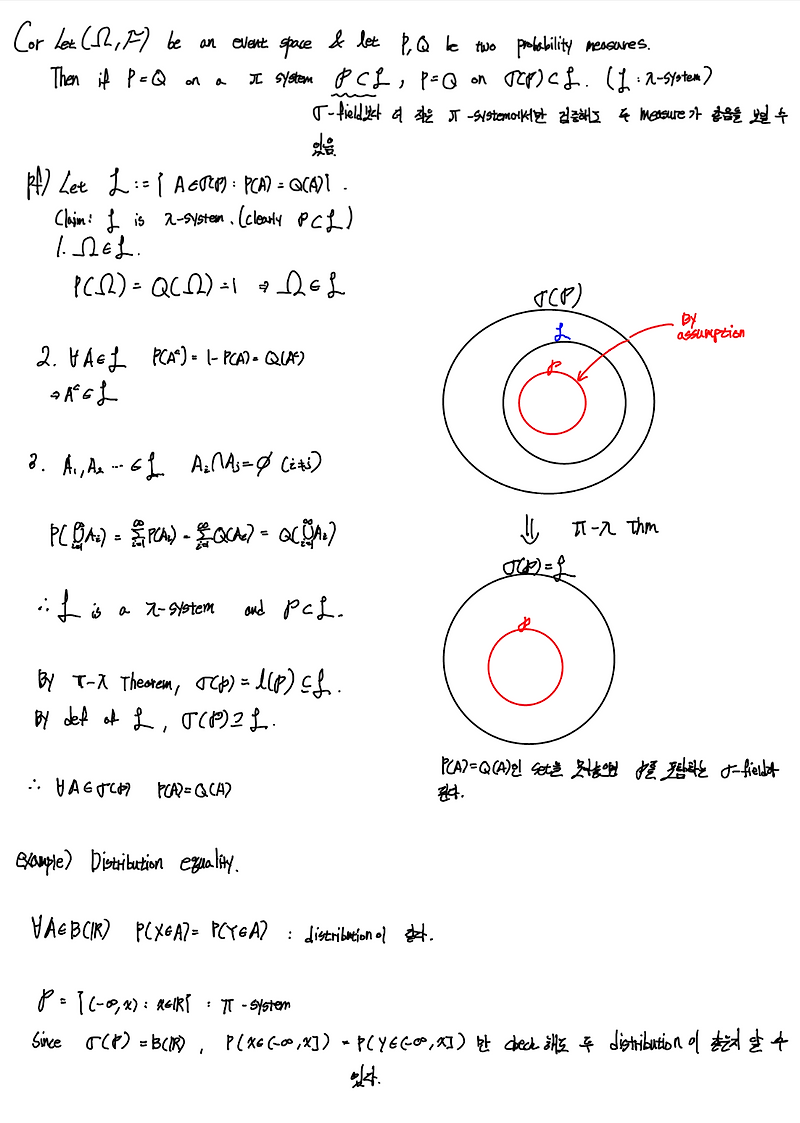 Cor Let (Ω, F) be an event space & let P, Q be two probability measures.
Then if P=Q on a π system 𝒫⊂ℒ, P=Q on σ(𝒫)⊂ℒ. (ℒ: λ-system)
σ-field보다 더 작은 π-system에서만 검증해도 두 measure가 같음을 보일 수
있음
pf) Let ℒ := { A∈σ(𝒫) : P(A) = Q(A)}.
Claim: ℒ is λ-system. (clearly 𝒫⊂ℒ)
1. Ω∈ℒ.
P(Ω) = Q(Ω) = 1 ⇒ Ω∈ℒ
2. ∀A∈ℒ P(Aᶜ) = 1-P(A) = Q(Aᶜ)
⇒ Aᶜ∈ℒ
3. A₁, A₂ ⋯ ∈ℒ Aᵢ∩Aⱼ=∅ (i≠j)
P(⋃ᵢ₌₁^∞ Aᵢ) = Σᵢ₌₁^∞ P(Aᵢ) = Σᵢ₌₁^∞ Q(Aᵢ) = Q(⋃ᵢ₌₁^∞ Aᵢ)
∴ ℒ is a λ-system and 𝒫⊂ℒ.
By π-λ Theorem, σ(𝒫) = l(𝒫) ⊆ℒ.
By def of ℒ, σ(𝒫)⊇ℒ.
∴ ∀A∈σ(𝒫) P(A)=Q(A)
σ(𝒫)
ℒ
𝒫
By
assumption
⇓ π-λ Thm
σ(𝒫)=ℒ
𝒫
P(A)=Q(A)인 set을 모아놓으면 𝒫를 포함하는 σ-field가
된다.
Example) Distribution equality.
∀A∈B(ℝ) P(X∈A) = P(Y∈A) : distribution이 같다.
𝒫 = {(-∞, x) : x∈ℝ} : π-system
Since σ(𝒫) = B(ℝ), P(X∈(-∞, x]) = P(Y∈(-∞, x]) 만 check 해도 두 distribution이 같은지 알 수
있다.